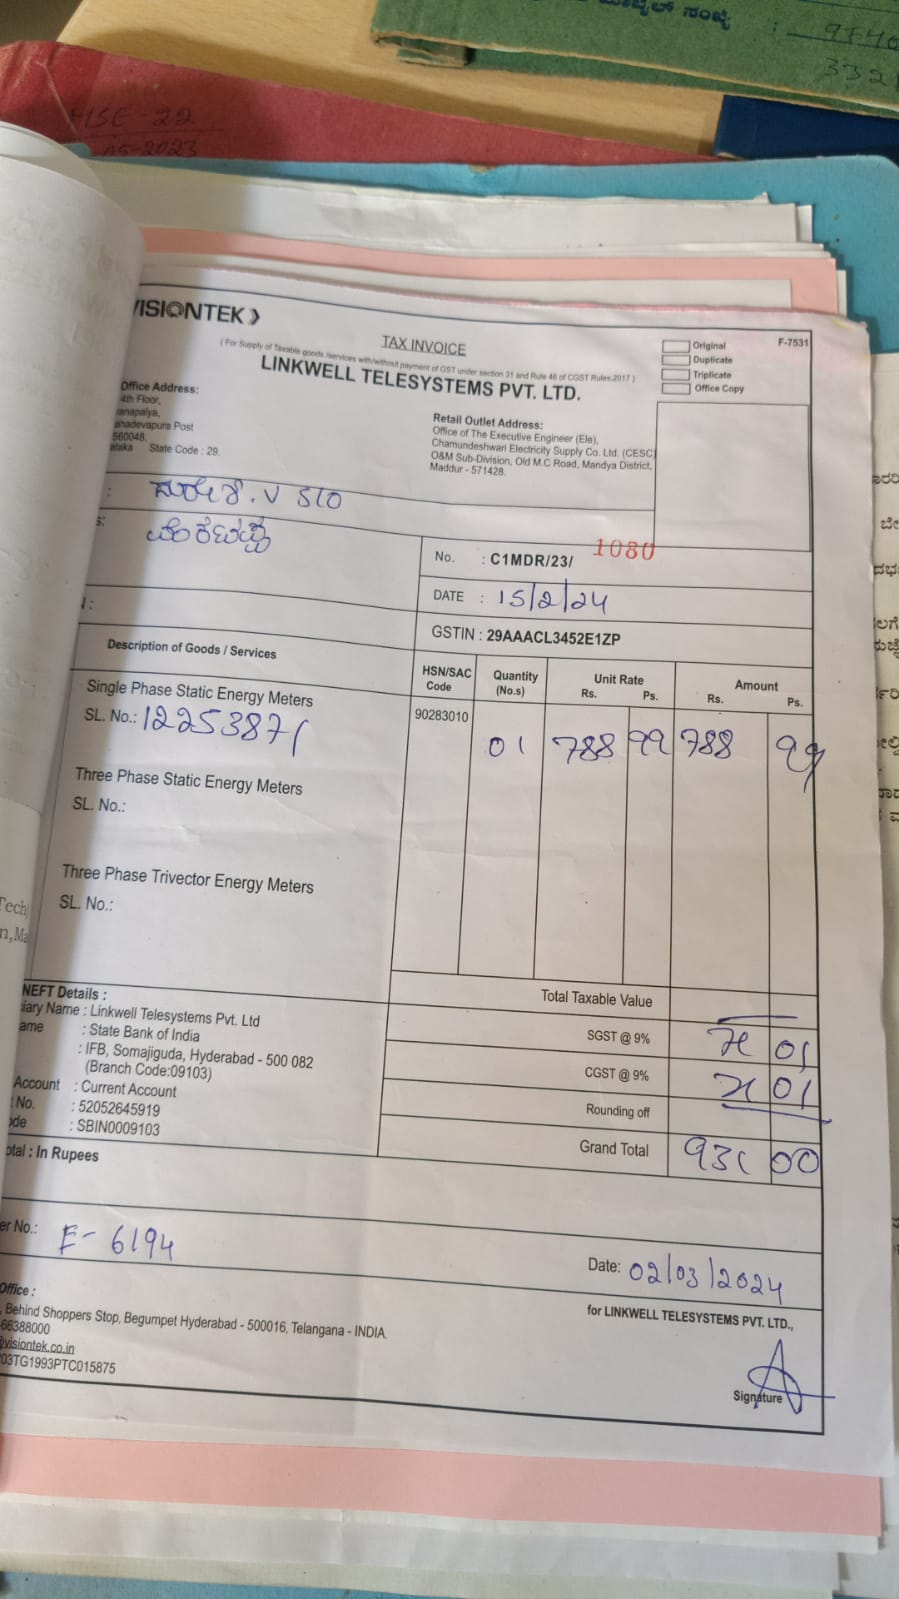 ಮೊಬೈಲ್ ಸಂಖ್ಯೆ :
332
MSE-22
05-2023
VISIONTEK
TAX INVOICE
( For Supply of Taxable goods /services with/without payment of GST under section 31 and Rule 46 of CGST Rules.2017 )
LINKWELL TELESYSTEMS PVT. LTD.
Original
Duplicate
Triplicate
Office Copy
F-7531
Office Address:
4th Floor,
anapalya,
ahadevapura Post
560048.
ataka State Code : 29.
Retail Outlet Address:
Office of The Executive Engineer (Ele),
Chamundeshwari Electricity Supply Co. Ltd. (CESC)
O&M Sub-Division, Old M.C Road, Mandya District,
Maddur - 571428.
ಸುರೇಶ.V S/O
ವೆಂಕಟಪ್ಪ
No. : C1MDR/23/ 1080
DATE : 15/2/24
GSTIN : 29AAACL3452E1ZP
Description of Goods / Services
HSN/SAC Code
Quantity (No.s)
Unit Rate
Rs. Ps.
Amount
Rs. Ps.
Single Phase Static Energy Meters
SL. No.: 12253871
90283010 01 788 99 788 99
Three Phase Static Energy Meters
SL. No.:
Three Phase Trivector Energy Meters
SL. No.:
Total Taxable Value
SGST @ 9% 71 01
CGST @ 9% 71 01
Rounding off
Grand Total 931 00
NEFT Details :
ciary Name : Linkwell Telesystems Pvt. Ltd
ame : State Bank of India
: IFB, Somajiguda, Hyderabad - 500 082
(Branch Code:09103)
Account : Current Account
No. : 52052645919
ode : SBIN0009103
otal : In Rupees
er No.: E- 6194
Date: 02/03/2024
for LINKWELL TELESYSTEMS PVT. LTD.,
Office :
, Behind Shoppers Stop, Begumpet Hyderabad - 500016, Telangana - INDIA.
66388000
@visiontek.co.in
03TG1993PTC015875
Signature